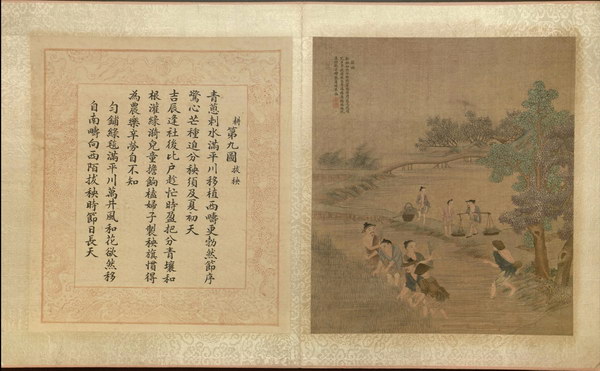 耕 第九圖 拔秧
青蔥刺水滿平川移植西疇更勃然節序
驚心芒種迫分秧須及夏初天
吉辰逢社後比户趁忙時盈把分青壤和
根濯綠漪兒童擔餉榼婦子製秧旗慣得
為農樂辛勞自不知
勻鋪綠毯滿平川萬井風和花欲然移
自南疇向西陌拔秧時節日長天